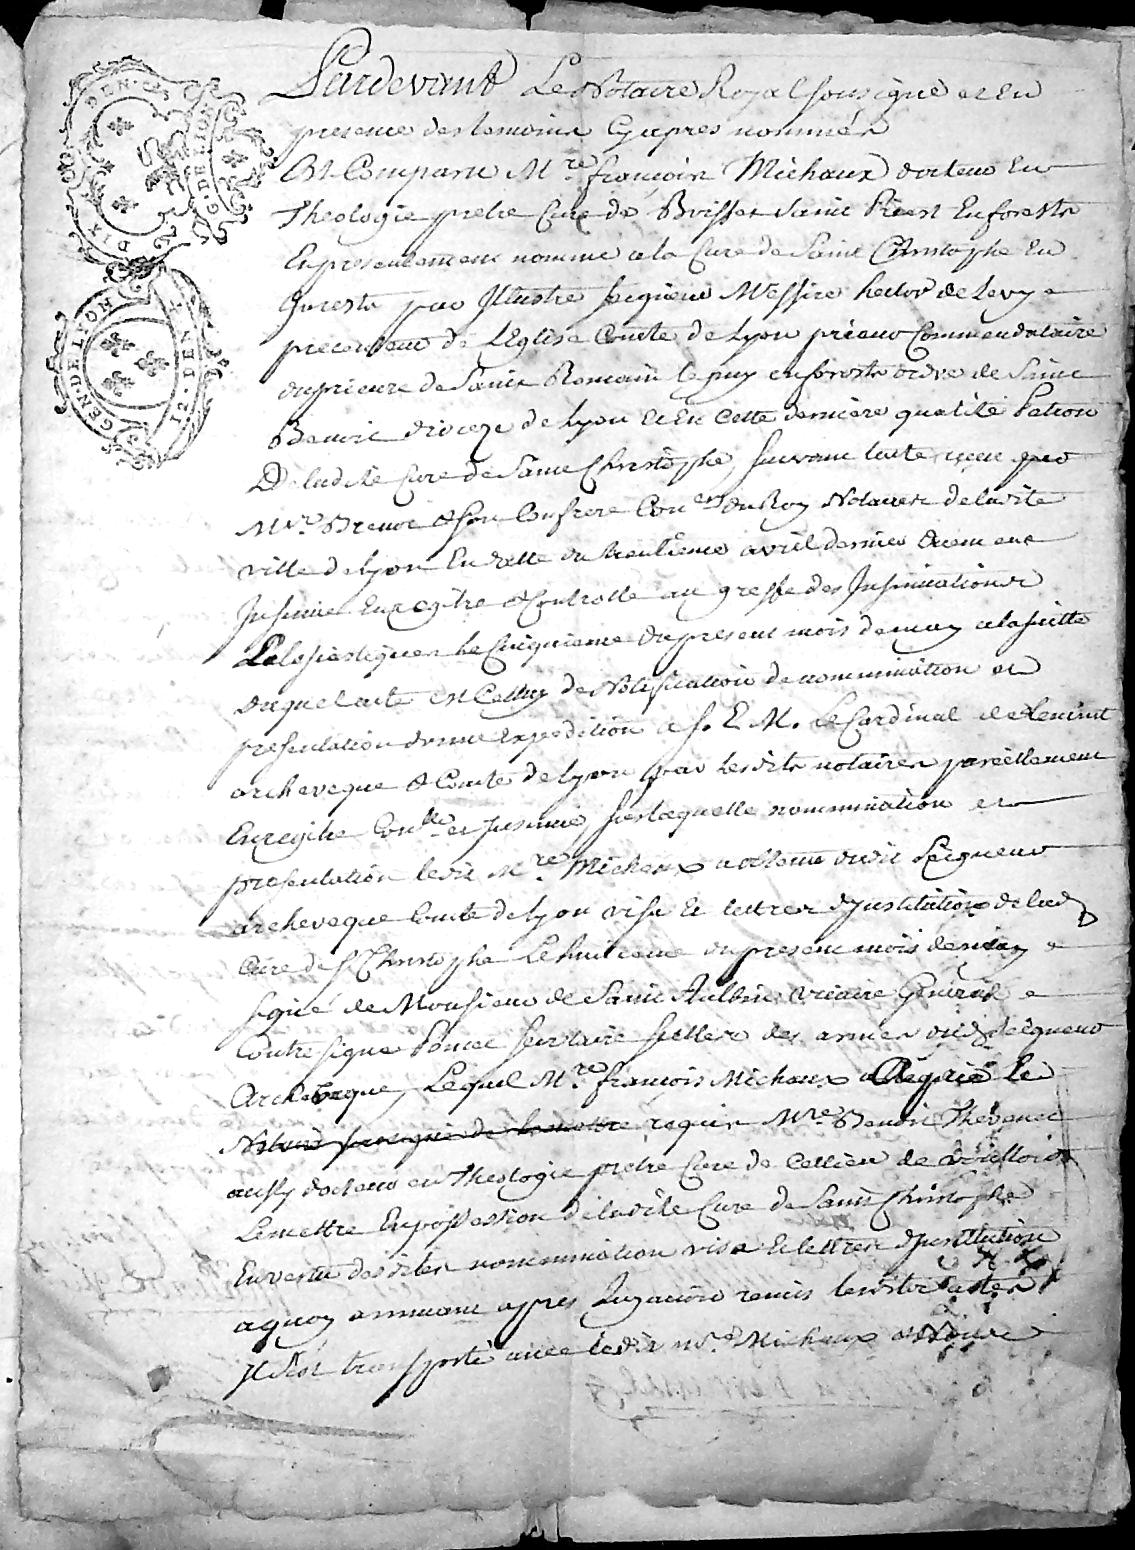 DIX DEN. G. DE LION
GEN. DE LYON 12. DEN. I
Pardevant Le Notaire Royal soussigné et En
presence des temoins Cyapres nommés
Est Comparu M.re françois Michaux docteur En
Theologie pretre Curé de Boisset saint Priest En forests
Enpresentement nommé ala Cure de Saint Christophe En
foresta par Illustre seigneur Messire hector de Levy
precenteur de LEglise Comte de Lyon prieur Commendataire
duprieuré de Saint Romain le puy en forests ordre de Saint
Benoit dioceze de Lyon Et En Cette derniere qualité Patron
De ladite Cure de Saint Christophe, suivant lacte reçeu par
M.re Brenot & son Confrere Con.er du Roy Notaires de ladite
ville de Lyon En datte du trentieme avril dernier duement
Insinué Enregitré & Controllé au greffe des Insinuations
Eclesiastiques le Cinquieme dupresent mois de may ala suitte
duquel acte est Celluy de Notification de nommination et
presentation donné expedition a S. E. M. Le Cardinal de Tencint
archeveque & Comte de Lyon par lesdits notaires pareillement
Enregitré Con.llé et Insinué, sur laquelle nommination et
presentation ledit M.re Michaux a obtenu dudit Seigneur
archeveque Comte de Lyon visa Et lettres d'Institution de lad
Cure de S. Christophe Le huitieme dupresent mois de may
signé de Monsieur de Saint Aulbin, vicaire General
Contresigné Poncet secretaire scellés des armes dud. Seigneur
Archeveque, Lequel M.re françois Michaux a Requis Le
Notaire soussigné de le mettre requis M.re Benoit Thevenet
aussy docteur en Theologie pretre Cure de Cellieu de vouloir
Le mettre En possession de ladite Cure de Saint Christophe
En vertu desdites nommination visa Et lettres d'Institution
aquoy annuant apres luy avoir remis lesdits actes
Il s'est transporté avec ledit M.re Michaux et Nous